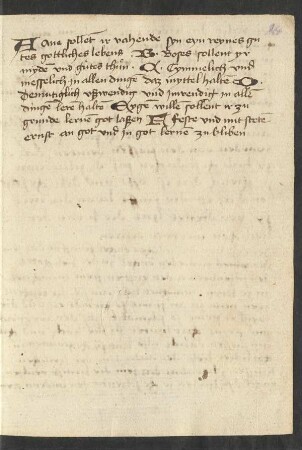 A Ane sollet ir vahende syn eyn reynes gu
tes gottliches lebens B Boses sollent yr
myde und gutes thün C Cymmelich und
messelich in allen dinge daz myttel halte D
Demutiglich vßwendig und jnwendig in alle
dinge lere halte Eyge wille sollent ir zu
grunde lerne got laßen F feste und mit stete
ernst an got und jn got lernē zu bliben